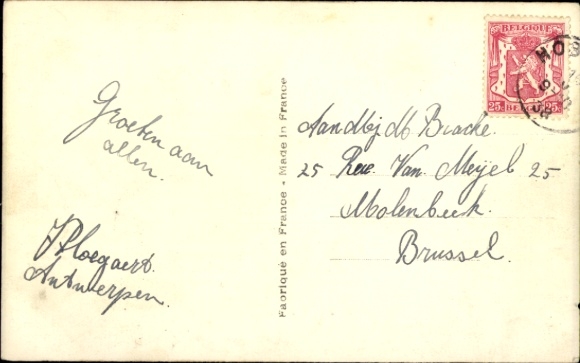 Groeten aan
allen.
Ploegaert.
Antwerpen.
Fabriqué en France - Made in France
BELGIQUE
25 BELGIE 25
Brache.
25 Rue Van Meyel 25
Molenbeek.
Brussel.